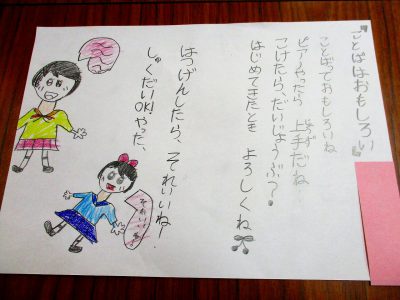 『ことばはおもしろい』
ことばっておもしろいね
ピアノやったら 上手だね
じょうず
こけたら、だいじょうぶっ?
はじめてきたとき よろしくね
はつげんしたら、それいいね!
しゅくだいOK!やった、
それいいね!